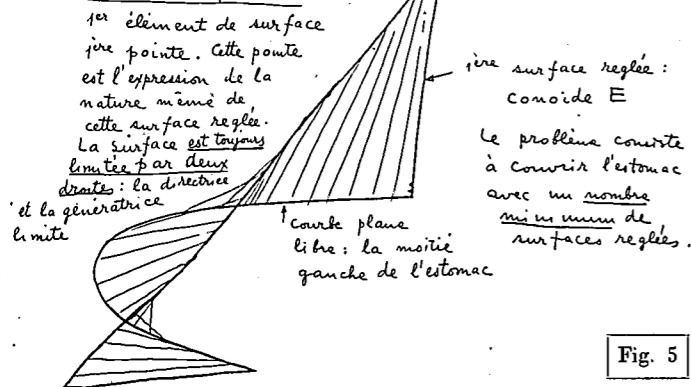 1er élément de surface
1ère pointe. Cette pointe
est l'expression de la
nature même de
cette surface reglée.
La surface est toujours
limitée par deux
droites : la directrice
et la génératrice
limite
1ère surface reglée :
conoïde E
Le problème consiste
à couvrir l'estomac
avec un nombre
minimum de
surfaces reglées.
courbe plane
libre : la moitié
gauche de l'estomac
Fig. 5